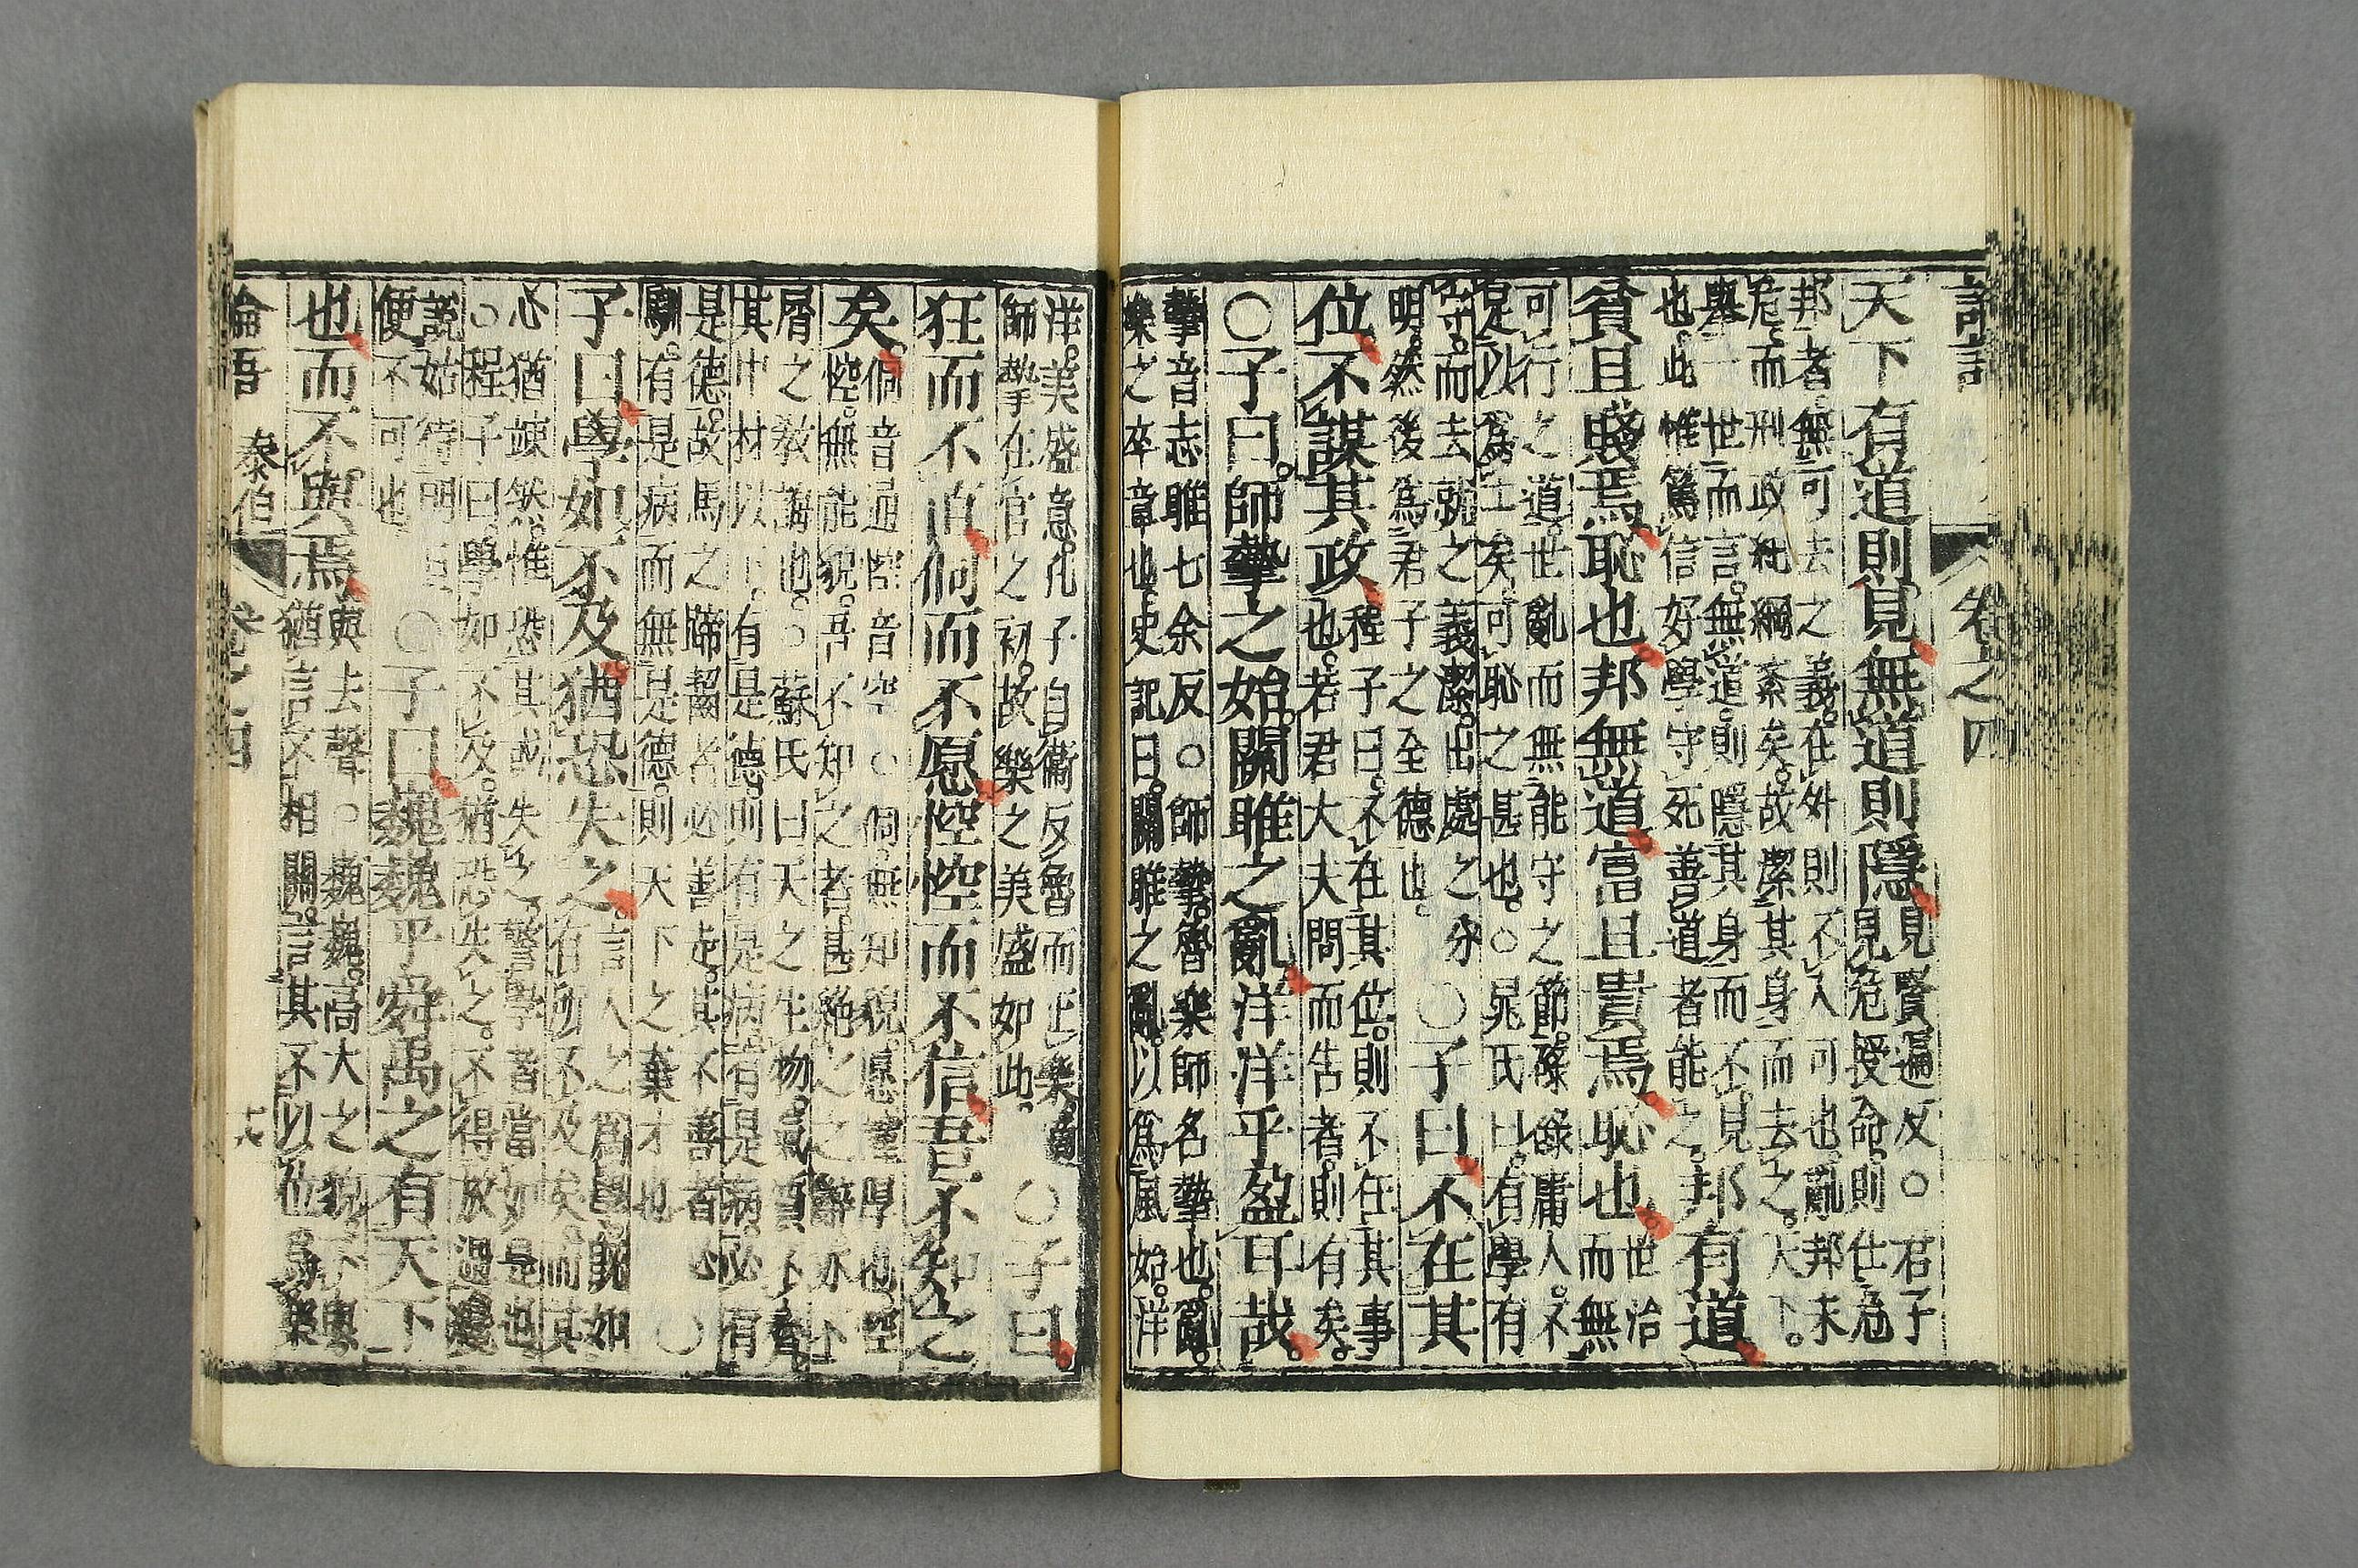 卷之四
天下有道則見無道則隱
見賢遍反。○君子
見危授命。則仕危
邦者。無可去之義。在外則不入可也。亂邦未
危。而刑政紀綱紊矣。故潔其身而去之。天下。
擧一世而言。無道。則隱其身而不見
也。此惟篤信好學守死善道者能之。
邦有道
貧且賤焉恥也邦無道富且貴焉恥也
世治
而無
可行之道。世亂而無能守之節。碌碌庸人。不
足以爲士矣。可恥之甚也。○晁氏曰。有學有
守。而去就之義潔。出處之分
明。然後爲君子之全德也。
○子曰不在其
位不謀其政
程子曰。不在其位。則不任其事
也。若君大夫問而告者。則有矣。
○子曰。師摯之始。關雎之亂洋洋乎盈耳哉。
摯音志雎七余反。○師摯。魯樂師名摯也。亂。
樂之卒章也。史記曰。關雎之亂。以爲風始。洋
洋。美盛意。孔子自衞反魯而正樂。適
師摯在官之初。故樂之美盛如此。
○子曰
狂而不直侗而不愿悾悾而不信吾不知之
矣。
侗音通悾音空○侗。無知貌。愿謹厚也。悾
悾。無能貌。吾不知之者。甚絶之之辭亦不
屑之教誨也。○蘇氏曰天之生物。氣質不齊
其中材以下。有是德。則有是病。有是病。必有
是德。故馬之蹄齧者必善走。其不善者必
馴。有是病而無是德。則天下之棄才也
○
子曰學如不及猶恐失之。
言人之爲學旣如
有所不及矣。而其
心猶竦然。惟恐其或失之。警學者當如是也
○程子曰。學如不及。猶恐失之。不得放過纔
說姑待明日
便不可也
○子曰巍巍乎舜禹之有天下
也而不與焉
與去聲○巍巍。高大之貌。不與。
猶言不相關。言其不以位爲樂
論語 泰伯 卷之四